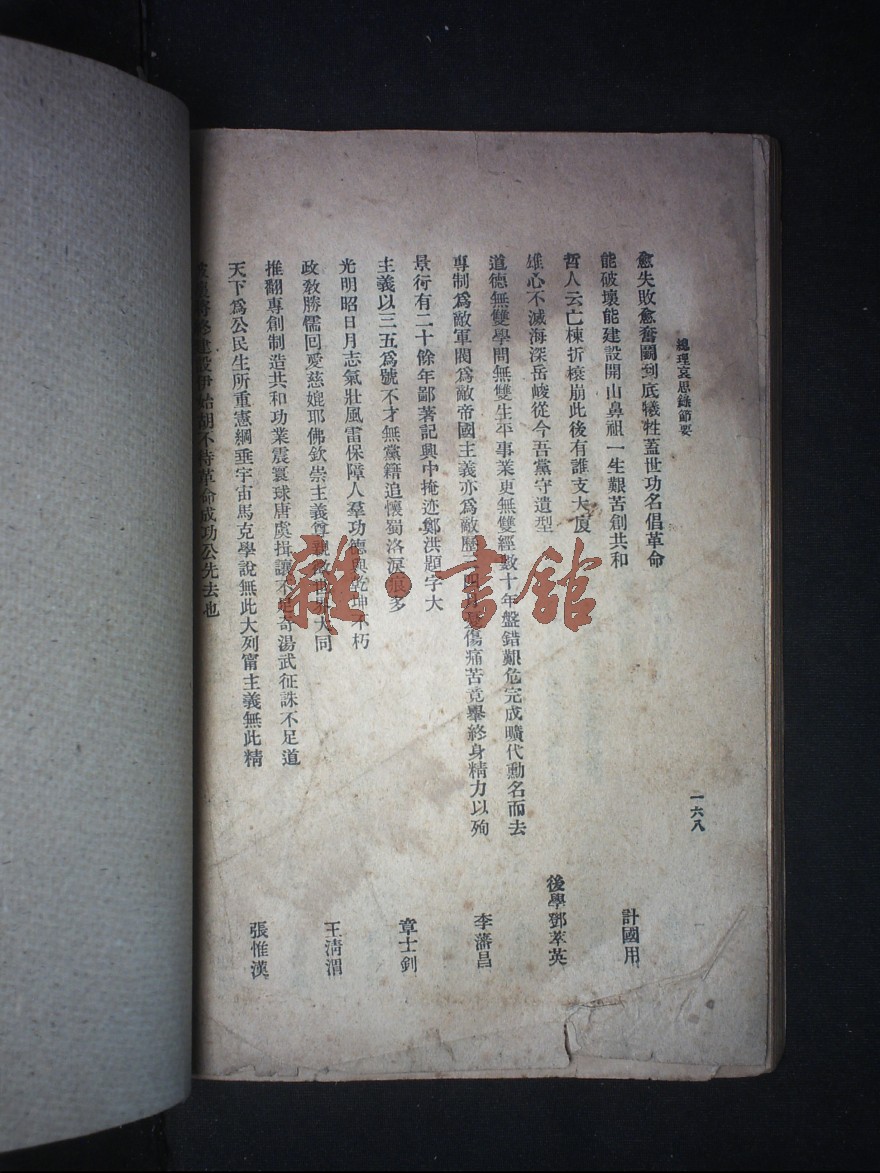 總理哀思錄節要
一六八
愈失敗愈奮鬭到底犧牲蓋世功名倡革命
能破壞能建設開山鼻祖一生艱苦創共和
計國用
哲人云亡棟折榱崩此後有誰支大廈
雄心不滅海深岳峻從今吾黨守遺型
後學鄧萃英
道德無雙學問無雙生平事業更無雙經數十年盤錯艱危完成曠代勳名而去
專制爲敵軍閥爲敵帝國主義亦爲敵歷三四月傷痛苦竟舉終身精力以殉
李藩昌
景行有二十餘年鄙著記興中掩迹鄭洪題字大
主義以三五爲號不才無黨籍追懷蜀洛淚痕多
章士釗
光明昭日月志氣壯風雷保障人羣功德與乾坤不朽
政敎勝儒回愛慈媲耶佛欽崇主義尊親世界大同
王淸渭
推翻專創制造共和功業震寰球唐虞揖讓不足奇湯武征誅不足道
天下爲公民生所重憲綱垂宇宙馬克學說無此大列甯主義無此精
張惟漢
建設伊始胡不待革命成功公先去也
雜·書館